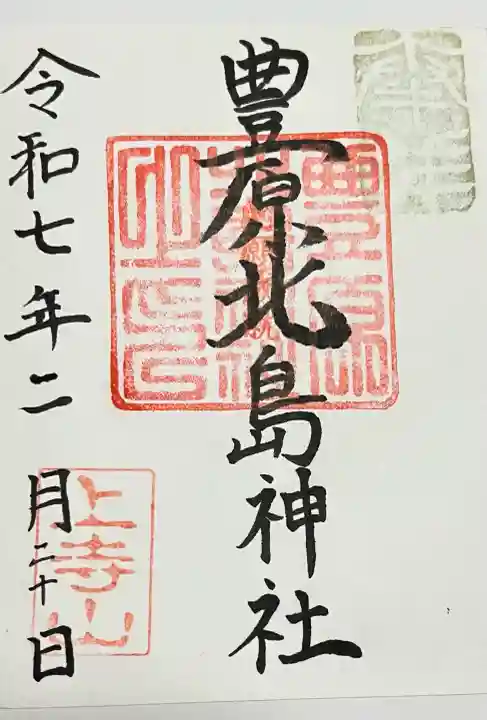 豊原北島神社
令和七年二月二十日
上寺山